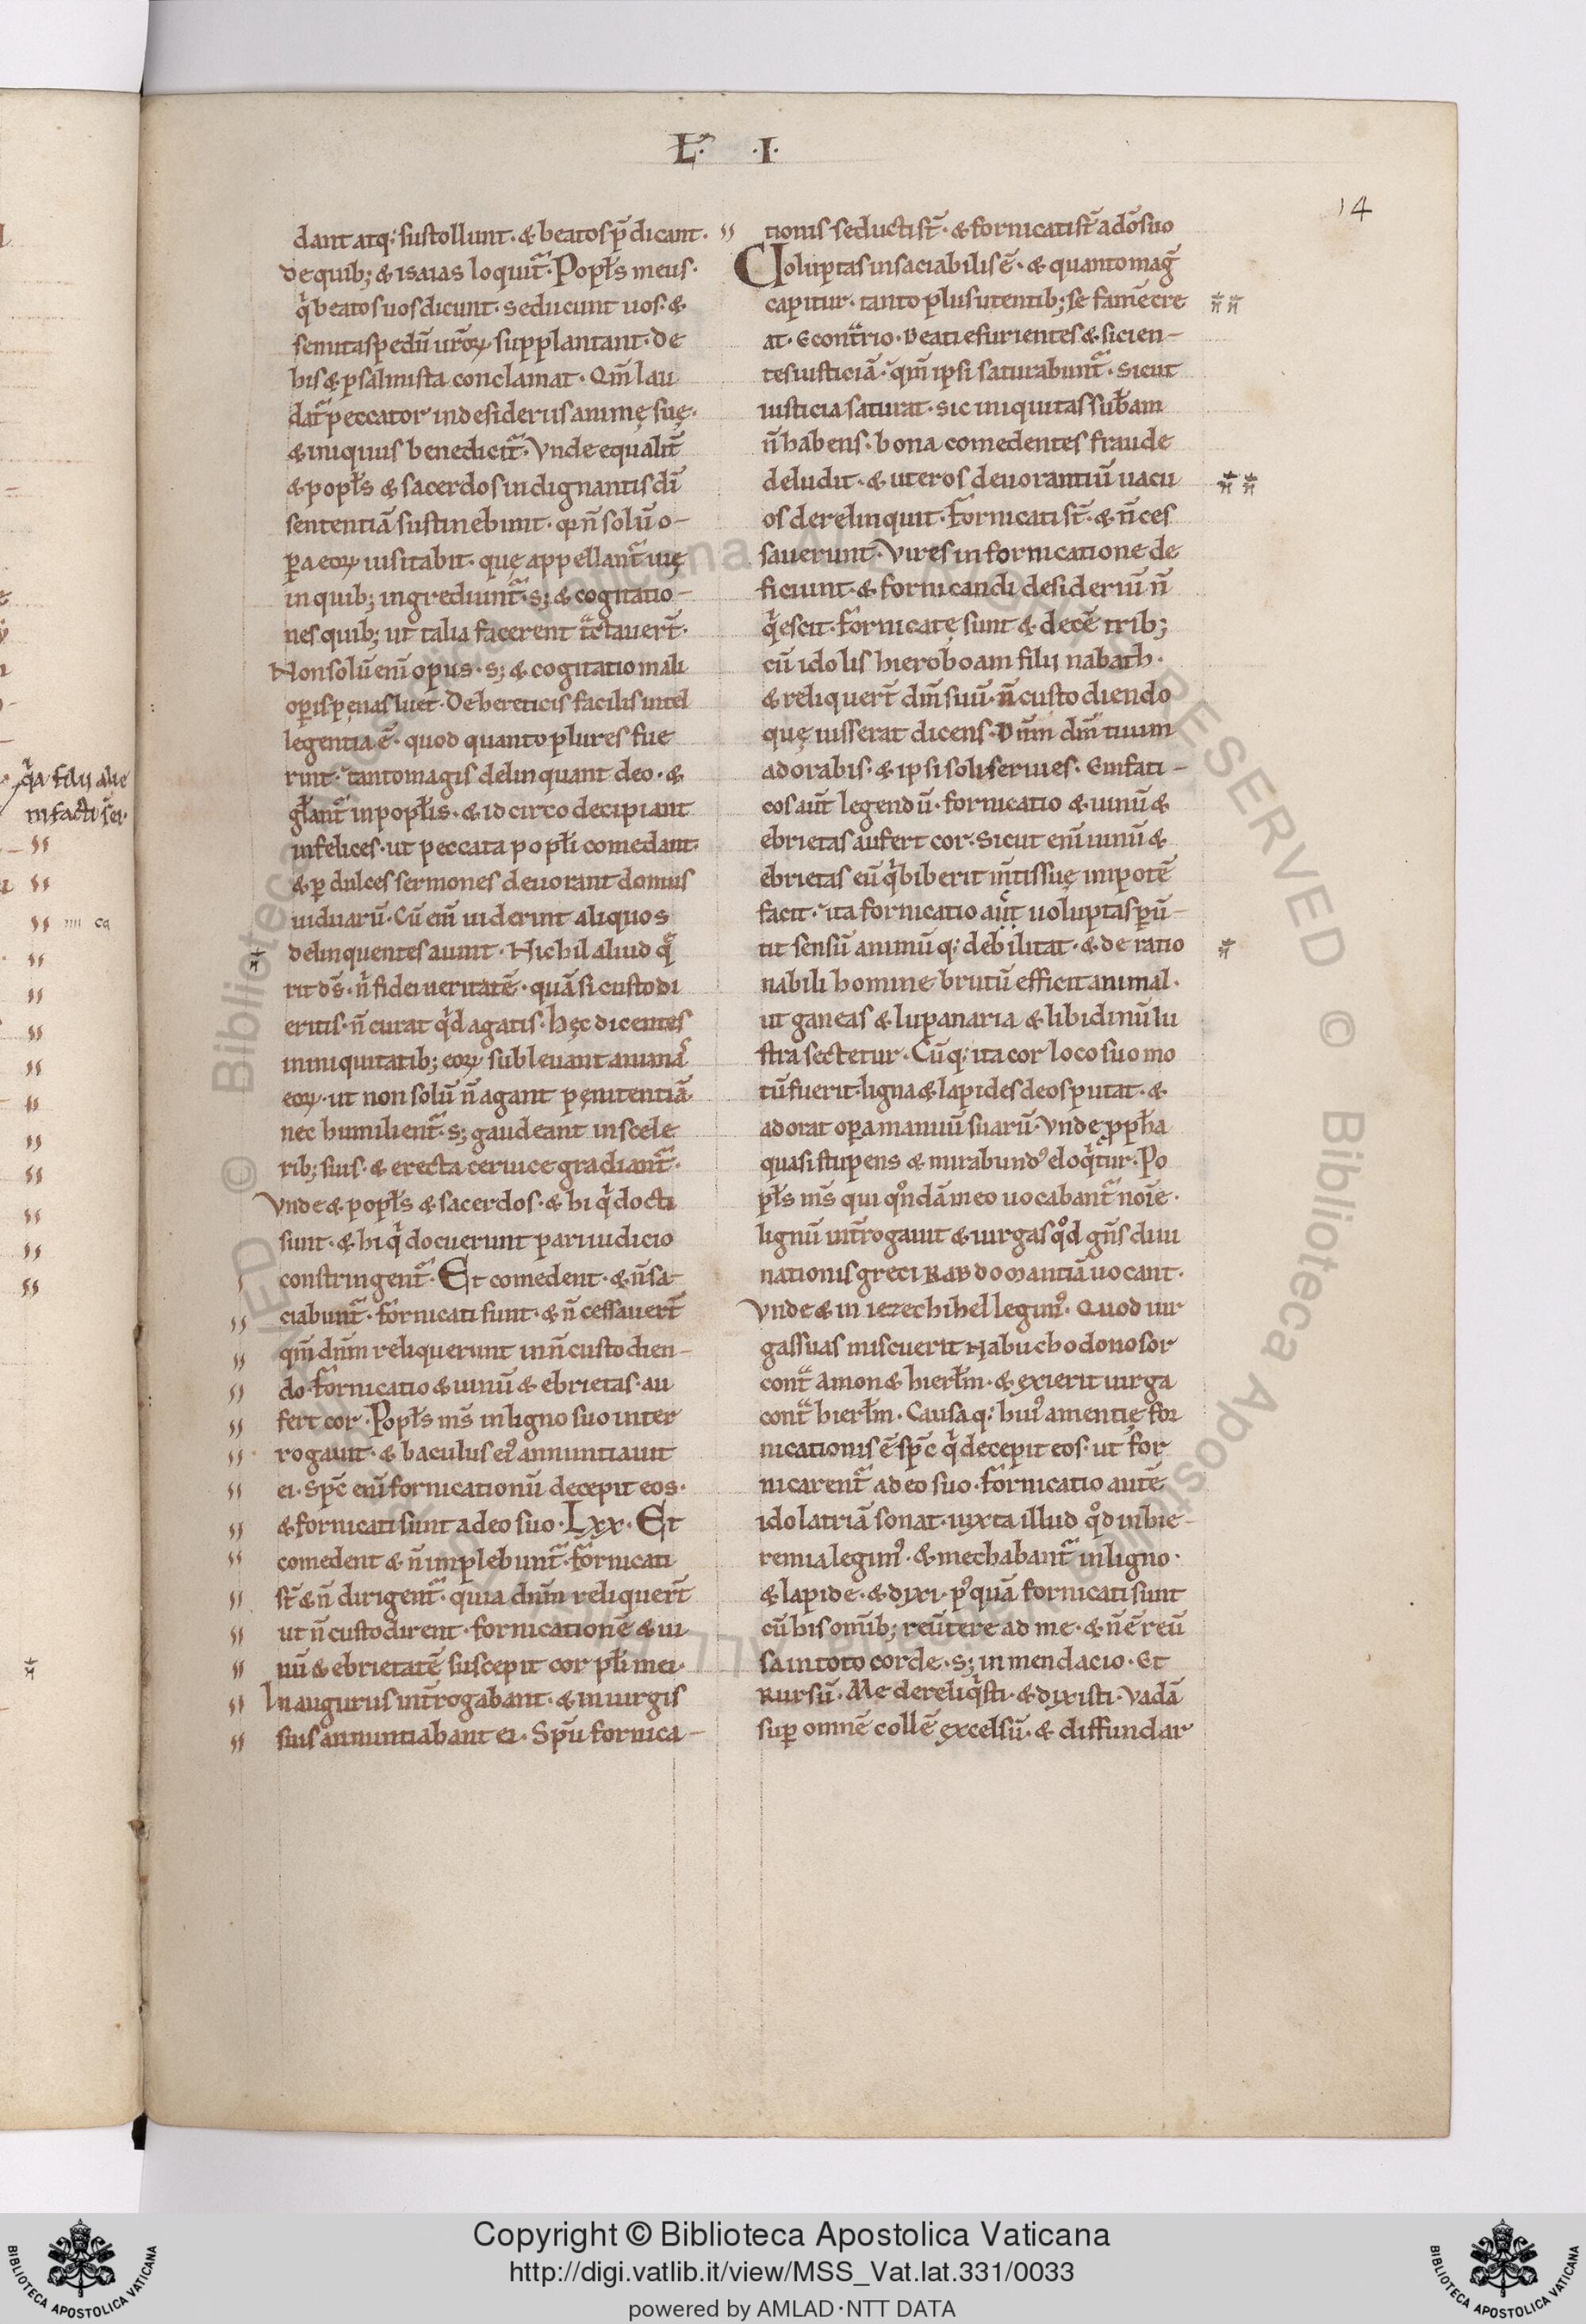 L. .I.
14
dant atq; sustollunt. & beatos p̄dicant.
De quib; & isaias loquit᷑. Popl̄s meus.
q̇ beatos uos dicunt. seducunt uos. &
semitas pedū ur̄oꝝ supplantant. De
his & psalmista conclamat. Qm̄ lau
dat᷑ peccator in desideriis animę suę.
& iniquus benedicit᷑. Vnde equalit̄
& popl̄s & sacerdos indignantis dī
sententiā sustinebunt. qꝫ n̄ solū o-
ꝑa eoꝝ uisitabit. quę appellant᷑ uię
in quib; ingrediunt᷑. s; & cogitatio-
nes quib; ut talia facerent t᷑ctauer̄t.
Non solū eni opus. s; & cogitatio mali
oꝑis pęnas luet. De hereticis facilis intel
legentia ē. quod quanto plures fue
rint. tanto magis delinquant deo. &
gl̄ant᷑ in popl̄is. & idcirco decipiant
infelices. ut peccata popl̄i comedant.
& ꝑ dulces sermones deuorant domus
uiduarū. Cū eni uiderint aliquos
delinquentes aiunt. Nichil aliud q̄
rit ds̄. n̄ fidei ueritatē. quā si custodi
eritis. n̄ curat q̇d agatis. hęc dicentes
in iniquitatib; eoꝝ subleuant animas
eoꝝ. ut non solū n̄ agant pęnitentiā.
nec humilient᷑. s; gaudeant in scele
rib; suis. & erecta ceruice gradiant᷑.
Vnde & popl̄s & sacerdos. & hi q̇ docti
sunt. & hi q̇ docuerunt pari iudicio
constringent᷑. Et comedent. & n̄ sa-
ciabunt᷑. fornicati sunt. & n̄ cessauer̄t
qm̄ dn̄m reliquerunt in n̄ custodien-
do. fornicatio & uinū & ebrietas. au
fert cor. Popl̄s ms̄ in ligno suo inter
rogauit. & baculus ei᾽ annuntiauit
ei. Spc̄ eni fornicationū decepit eos.
& fornicati sunt a deo suo. Lxx. Et
comedent & n̄ implebunt᷑. fornicati
st̄ & n̄ dirigent᷑. quia dn̄m reliquer̄t
ut n̄ custodirent. fornicationē & ui
nū & ebrietatē suscepit cor pl̄i mei.
In auguriis int̄rogabant. & in uirgis
suis annuntiabant ei. Spū fornica-
tionis seducti st̄. & fornicati st̄ a dō suo
Voluptas insaciabilis ē. & quanto mag̅
capitur. tanto plus utentib; se famē cre
at. Econt᷑rio. Beati esurientes & sicien-
tes iusticiā. qm̄ ipsi saturabunt᷑. Sicut
iusticia saturat. sic iniquitas sub̄am
n̄ habens. bona comedentes fraude
deludit. & uteros deuorantiū uacu
os derelinquit. Fornicati st̄. & n̄ ces
sauerunt. Vires in fornicatione de
ficiunt. & fornicandi desideriū n̄
q̇escit. Fornicatę sunt & decē trib;
cū idolis hieroboam filii nabath.
& reliquer̄t dm̄ suū. n̄ custodiendo
quę iusserat dicens. Dn̄m dm̄ tuum
adorabis. & ipsi soli seruies. Emfati-
cos aut̄ legendū. fornicatio & uinū &
ebrietas aufert cor. Sicut eni uinū &
ebrietas eū q̇ biberit m̄tis suę impotē
facit. ita fornicatio aut uoluptas ꝑū-
tit sensū animūq; debilitat. & de ratio
nabili homine brutū efficit animal.
ut ganeas & lupanaria & libidinū lu
stra sectetur. Cūq; ita cor loco suo mo
tū fuerit. ligna & lapides deos putat. &
adorat oꝑa manuū suarū. Vnde ꝓph̄a
quasi stupens & mirabund᾽ eloq̇tur. Po
pl̄s ms̄ qui qn̊dā meo uocabant᷑ noīe.
lignū int̄rogauit & uirgas qd̊ gn̄s diui
nationis greci RABDOMANTIĀ uocant.
Vnde & in iezechihel legim᾽. Quod uir
gas suas miscuerit Nabuchodonosor
cont᷑ amon & hierl̄m. & exierit uirga
cont᷑ hierl̄m. Causaq; hui᾽ amentię for
nicationis ē spc̄ q̇ decepit eos. ut for
nicarent᷑ a deo suo. fornicatio autē
idolatriā sonat. iuxta illud qd̊ in hie-
remia legim᾽. & mechabant᷑ in ligno.
& lapide. & dixi. p᾽quā fornicati sunt
cū his omīb; reūtere ad me. & n̄ ē reū
sa in toto corde. s; in mendacio. Et
Rursū. Me dereliq̇sti. & dixisti. Vadā
suꝑ omnē collē excelsū. & diffundar
q̇a filii alie
ni facti st̄ ei.
© Biblioteca Apostolica Vaticana. ALL RIGHTS RESERVED
Copyright © Biblioteca Apostolica Vaticana
http://digi.vatlib.it/view/MSS_Vat.lat.331/0033
powered by AMLAD·NTT DATA
BIBLIOTECA APOSTOLICA VATICANA
BIBLIOTECA APOSTOLICA VATICANA